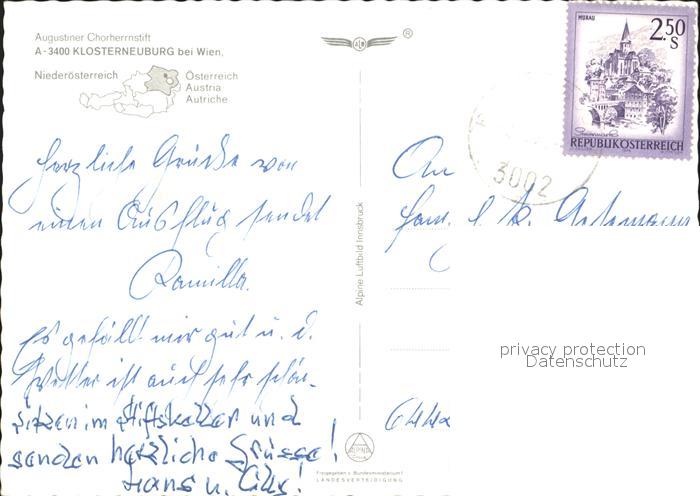 Augustiner Chorherrnstift
A-3400 KLOSTERNEUBURG bei Wien,
Niederösterreich
Österreich
Austria
Autriche
Herzliche Grüße von
einen Ausflug sendet
Ramilla.
Es gefällt mir gut u. d.
Wetter ist auch sehr schön.
Sitzen im Stiftskeller und
senden herzliche Grüsse!
Hans u.
Alpine Luftbild Innsbruck
ALPINE
Freigegeben v. Bundesministerium f.
LANDESVERTEIDIGUNG
®
MURAU
2.50
S
REPUBLIK ÖSTERREICH
3002
An
Fam.
privacy protection
Datenschutz